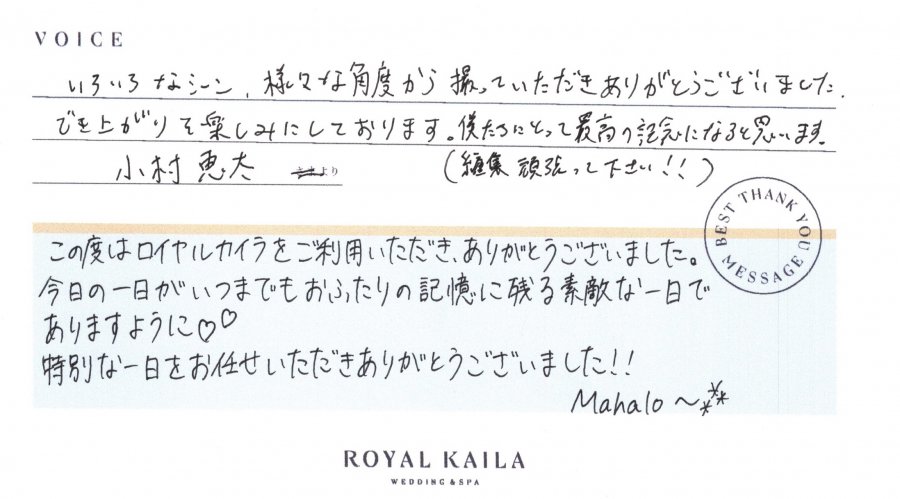 VOICE
いろいろなシーン、様々な角度から撮っていただきありがとうございました。
でき上がりを楽しみにしております。僕たちにとって最高の記念になると思います。
小村 恵太 より (編集 頑張って下さい!!)
BEST THANK YOU MESSAGE
この度はロイヤルカイラをご利用いただき、ありがとうございました。
今日の一日がいつまでもおふたりの記憶に残る素敵な一日で
ありますように♡♡
特別な一日をお任せいただきありがとうございました!!
Mahalo～
ROYAL KAILA
WEDDING & SPA